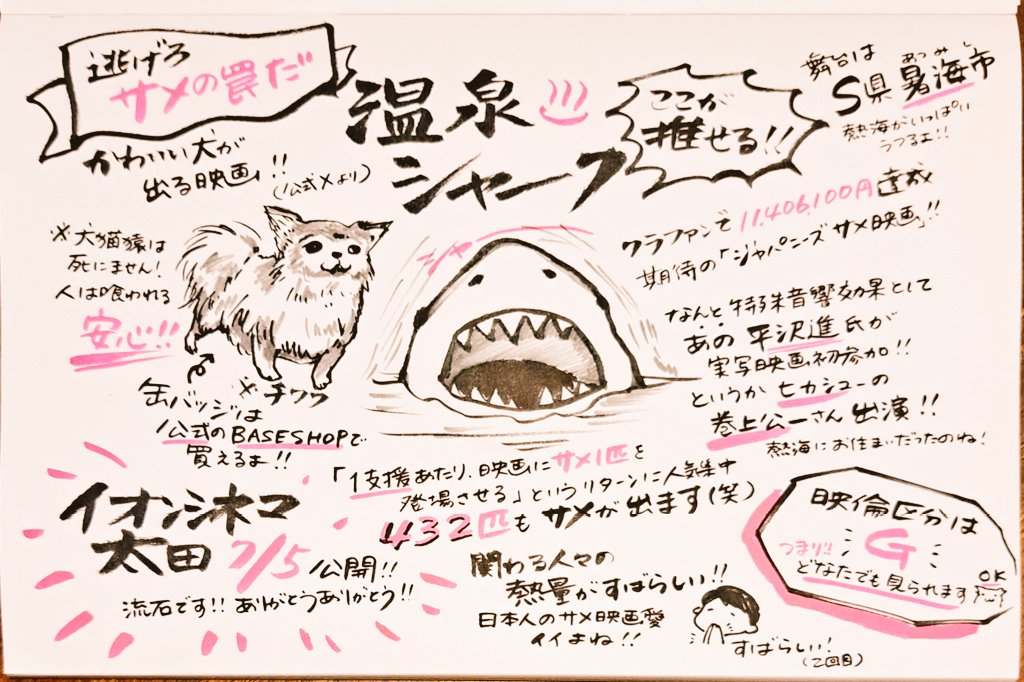 逃げろ
サメの罠だ
温泉♨
シャーク
ここが
推せる!!
あつみし
舞台は
S県 暑海市
熱海がいっぱい
うつるよ!!
かわいい犬が
出る映画!!
(公式Xより)
※犬猫猿は
死にません!
人は喰われる
安心!!
シャー
クラファンで 11,406,100円達成
期待の「ジャパニーズ サメ映画」!!
なんと特殊音響効果として
あの 平沢進氏が
実写映画初参加!!
というか ヒカシューの
巻上公一さん 出演!!
熱海にお住まいだったのね!
※チワワ
缶バッジは
公式のBASESHOPで
買えるよ!!
「1支援あたり、映画にサメ1匹を
登場させる」というリターンに人気集中
432匹も サメが出ます(笑)
イオンシネマ
太田 7/5 公開!!
流石です!! ありがとうありがとう!!
関わる人々の
熱量がすばらしい!!
日本人のサメ映画愛
イイよね!!
すばらしい!
(2回目)
映倫区分は
G
つまり!!
どなたでも見られます
OK